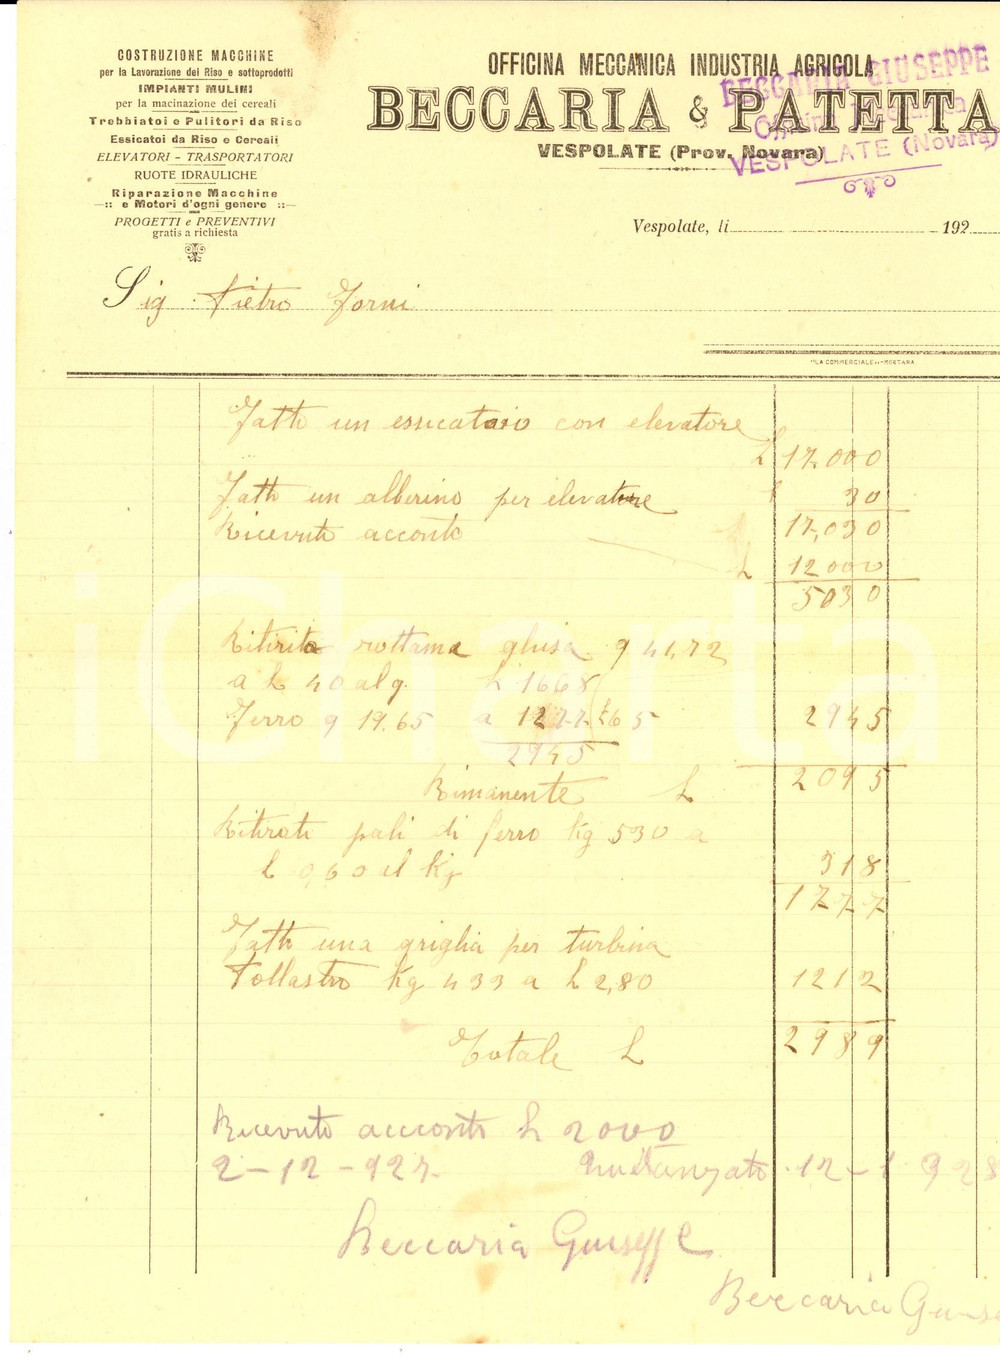 COSTRUZIONE MACCHINE
per la Lavorazione del Riso e sottoprodotti
IMPIANTI MULINI
per la macinazione dei cereali
Trebbiatoi e Pulitori da Riso
Essicatoi da Riso e Cereali
ELEVATORI - TRASPORTATORI
RUOTE IDRAULICHE
Riparazione Macchine
—:: e Motori d'ogni genere ::—
PROGETTI e PREVENTIVI
gratis a richiesta
OFFICINA MECCANICA INDUSTRIA AGRICOLA
BECCARIA & PATETTA
VESPOLATE (Prov. Novara)
BECCARIA GIUSEPPE
Officina Meccanica
VESPOLATE (Novara)
Vespolate, li 192
Sig. Pietro Forni
"LA COMMERCIALE" - MORTARA
Fatto un essicatoio con elevatore
L 17.000
Fatto un alberino per elevatore 30
Ricevuto acconto 17,030
L 12000
5030
Ritirita rottama ghisa q 41,72
a L 40 al q. L 1668
Ferro q 19.65 a 1277 £65 2945
2945
Rimanente L 2095
Ritirati pali di ferro Kg 530 a
L 0,60 il Kg 318
1777
Fatto una griglia per turbina
Pollastro Kg 433 a L 2,80 1212
Totale L 2989
Ricevuto acconto L 2000
2-12-927. 12-1 928
Beccaria Giuseppe
Beccaria
iCharta